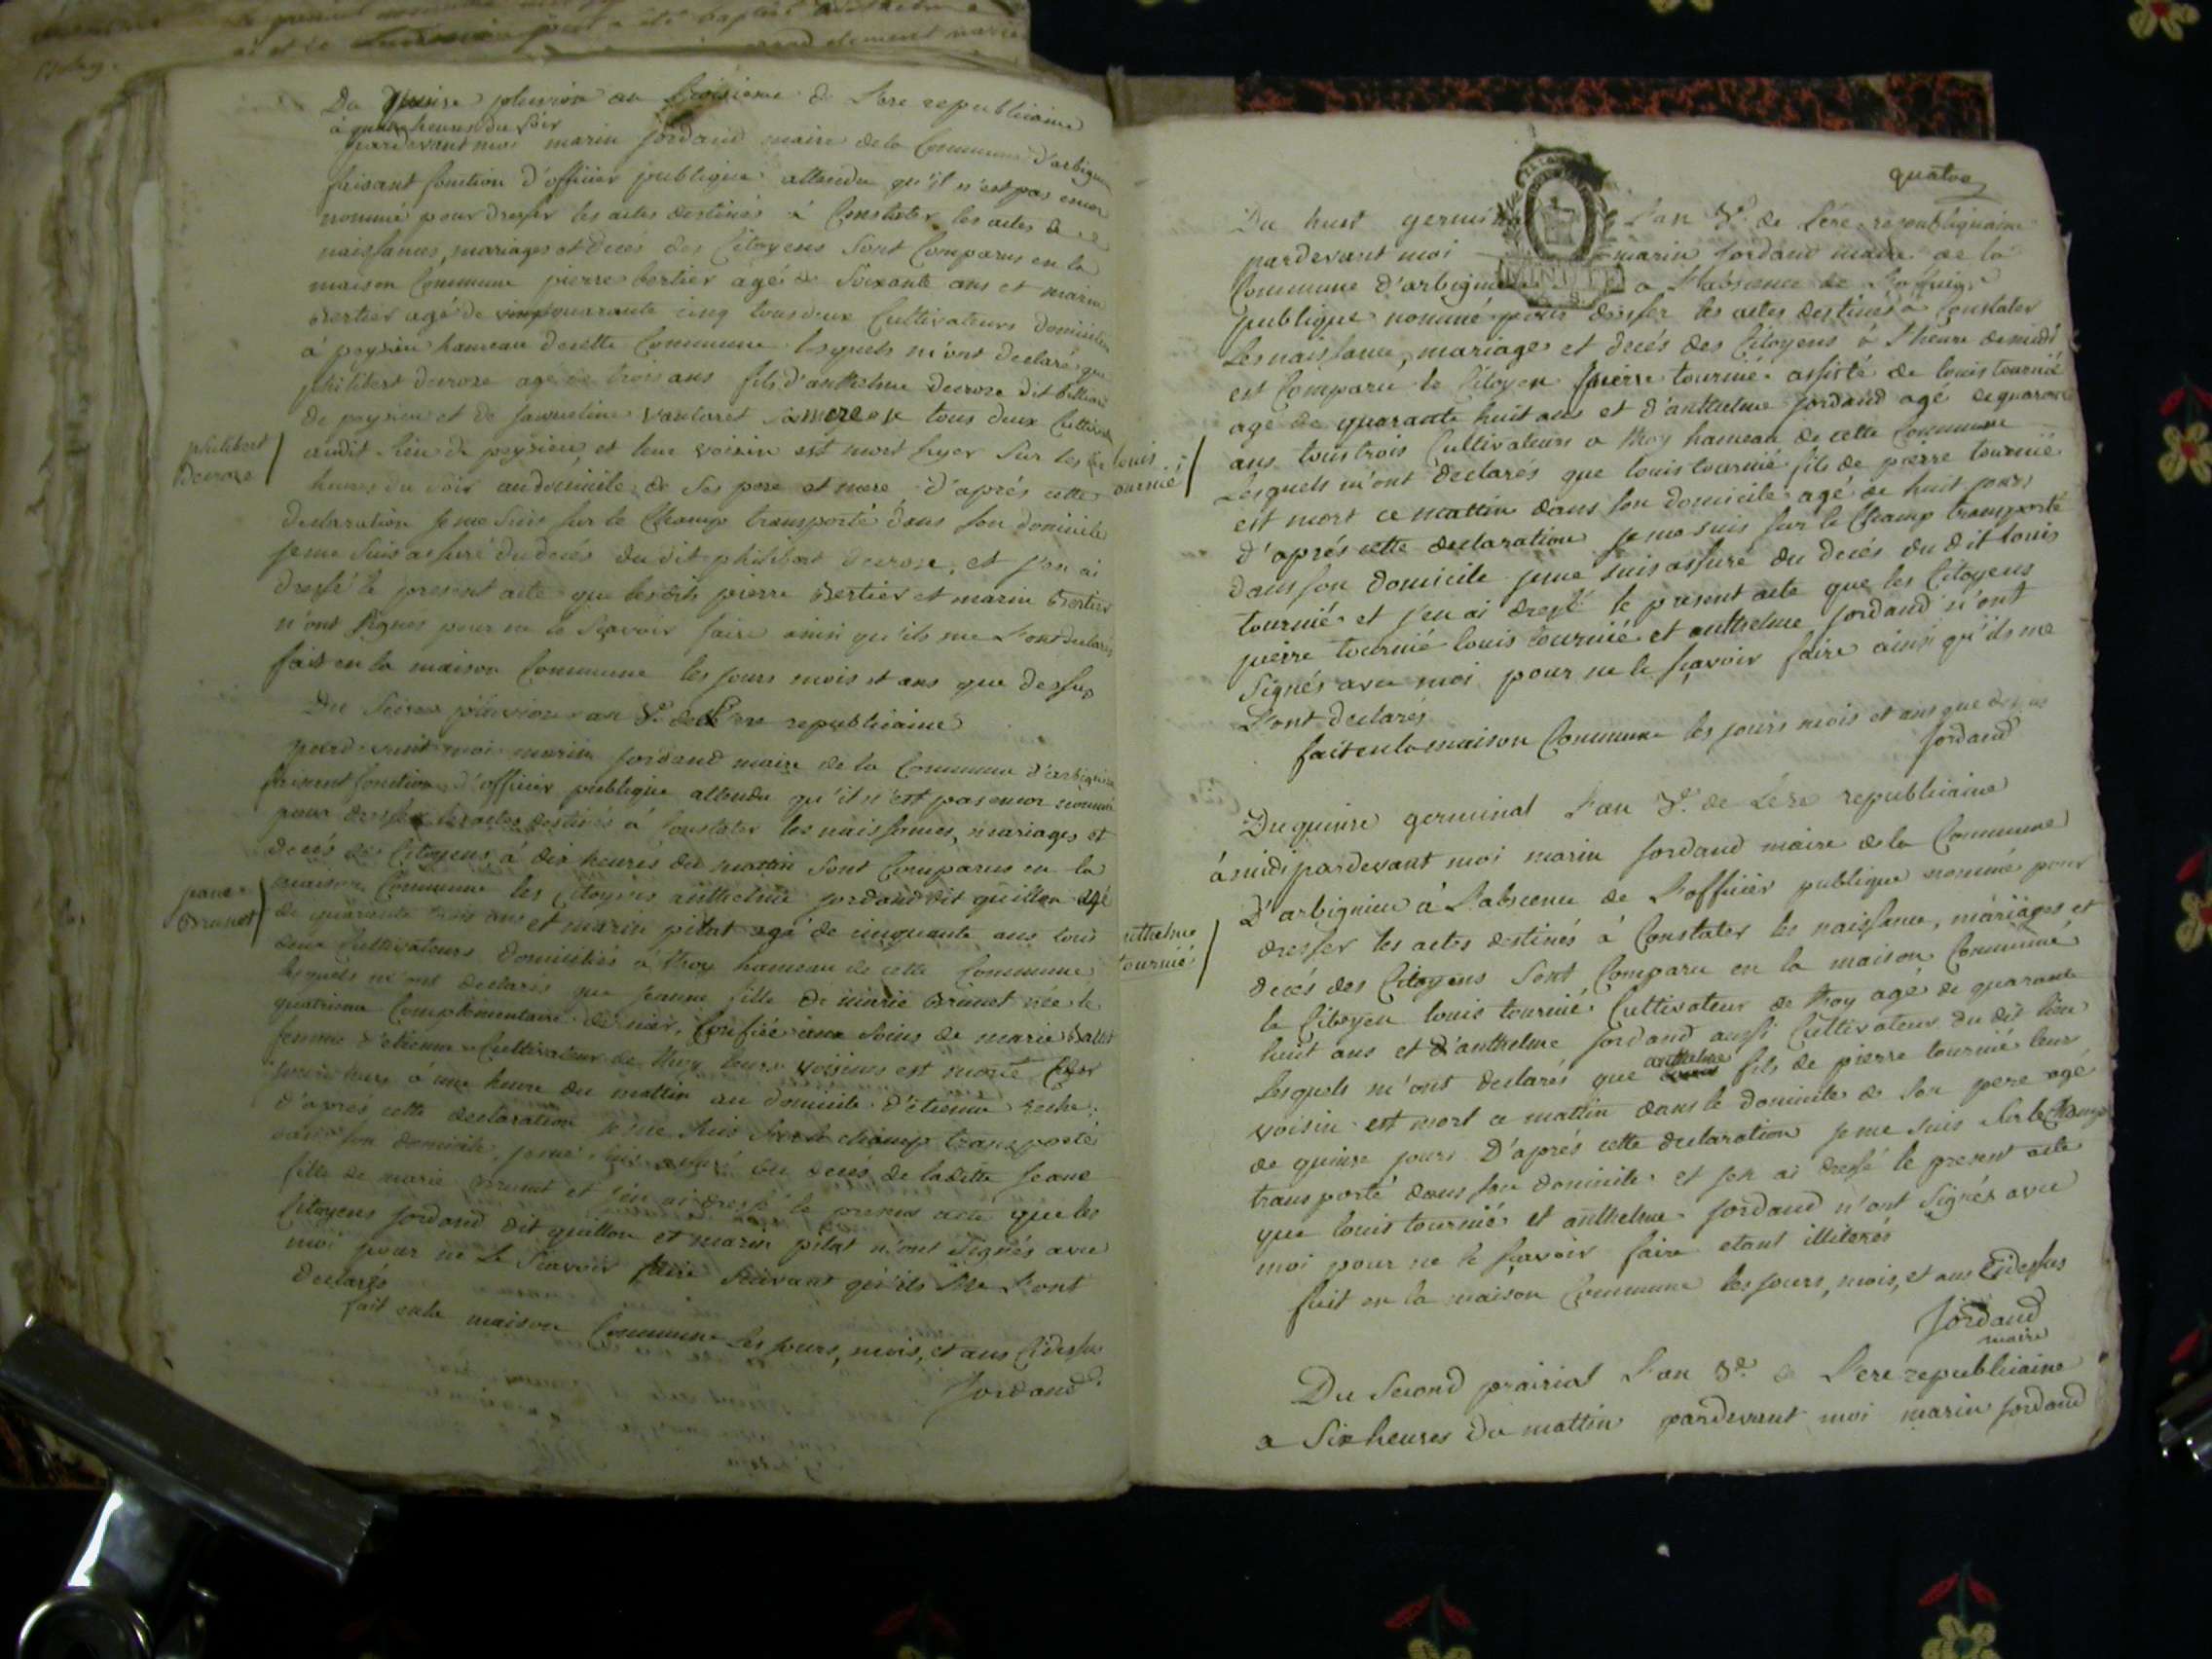 Du pluviose an troisieme de l'ere republicaine
à quatre heures du soir
pardevant moi marin jordand maire de la Commune d'arbignieu
faisant fonction d'officier publique attendu qu'il n'est pas encor
nommé pour dresser les actes destinés à Constater les actes de
naissances, mariages et decés des Citoyens sont Comparus en la
maison Commune pierre bertier agé de soixante ans et marin
Bertier agé de quarante cinq tous deux Cultivateurs domiciliés
à peysieu hameau de cette Commune lesquels m'ont declaré que
philibert decroze agé de trois ans fils d'anthelme decroze dit
de peysieu et de jacqueline tous deux
audit lieu de peysieu, et leur voisin est mort hyer sur les
heures du soir au domicile de ses pere et mere, d'aprés cette
declaration je me suis sur le Champ transporté dans son domicile
je me suis assuré du decés du dit philibert decroze, et j'en ai
dressé le present acte que les dits pierre Bertier et marin Bertier
n'ont signés pour ne le sçavoir faire ainsi qu'ils me l'ont declarés
fait en la maison Commune les jours mois et ans que dessus
philibert
Decroze
Du pluviose an 3e. de l'ere republicaine
pardevant moi marin jordand maire de la Commune d'arbignieu
faisant fonction d'officier publique attendu qu'il n'est pas encor nommé
pour dresser les actes destinés à Constater les naissances, mariages et
decés des Citoyens, à dix heures du mattin sont Comparus en la
maison Commune les Citoyens anthelme jordand dit quillon agé
de quarante trois ans et marin pilat agé de cinquante ans tous
deux Cultivateurs domiciliés à thoy hameau de cette Commune
lesquels m'ont declarés que jeanne fille de marie Brunet née le
quatrieme Complementaire dernier, Confiée aux soins de marie
femme d'etienne Cultivateur de thoy leurs voisins est morte
à une heure du mattin au domicile d'etienne
d'aprés cette declaration je me suis sur le champ transporté
dans son domicile, je me suis assuré du decés de ladette jeane
fille de marie Brunet et j'en ai dressé le present acte que les
Citoyens jordand dit quillon et marin pilat n'ont signés avec
moi pour ne le sçavoir faire suivant qu'ils me l'ont
declarés
fait en la maison Commune les jours, mois, et ans Cidessus
Jordand
jeane
Brunet
quatre
Du huit germinal l'an 3e. de l'ére republiquaine
pardevant moi marin jordand maire de la
Commune d'arbignieu a l'absence de l'officier
publique nommé pour dresser les actes destinés a Constater
les naissance, mariages et decés des Citoyens à l'heure de midi
est Comparu le Citoyen pierre tournié assisté de louis tournié
agé de quarante huit ans et d'anthelme jordand agé de quarante
ans tous trois Cultivateurs a thoy hameau de cette Commune
lesquels m'ont declarés que louis tournié fils de pierre tournié
est mort ce mattin dans son domicile agé de huit jours
d'aprés cette declaration je me suis sur le Champ transporté
dans son domicile je me suis assuré du decés du dit louis
tournié et j'en ai dressé le present acte que les Citoyens
pierre tournié louis tournié et anthelme jordand n'ont
signés avec moi pour ne le sçavoir faire ainsi qu'ils me
l'ont declarés
fait en la maison Commune les jours mois et ans que dessus
jordand
louis
tournié
Du quinse germinal l'an 3e. de l'ére republicaine
à midi pardevant moi marin jordand maire de la Commune
d'arbignieu à l'absence de l'officier publique nommé pour
dresser les actes destinés à Constater les naissance, mariages et
decés des Citoyens sont Comparu en la maison Commune
le Citoyen louis tournié Cultivateur de thoy agé de quarante
huit ans et d'anthelme jordand aussi Cultivateur du dit lieu
lesquels m'ont declarés que anthelme fils de pierre tournié leur
voisin est mort ce mattin dans le domicile de son pere agé
de quinse jours D'aprés cette declaration je me suis sur le Champ
transporté dans son domicile et j'en ai dressé le present acte
que louis tournié et anthelme jordand n'ont signés avec
moi pour ne le sçavoir faire etant illiterés
fait en la maison Commune les jours, mois, et ans Cidessus
Jordand
maire
anthelme
tournié
Du second prairial l'an 3e. de l'ere republicaine
a six heures du mattin pardevant moi marin jordand